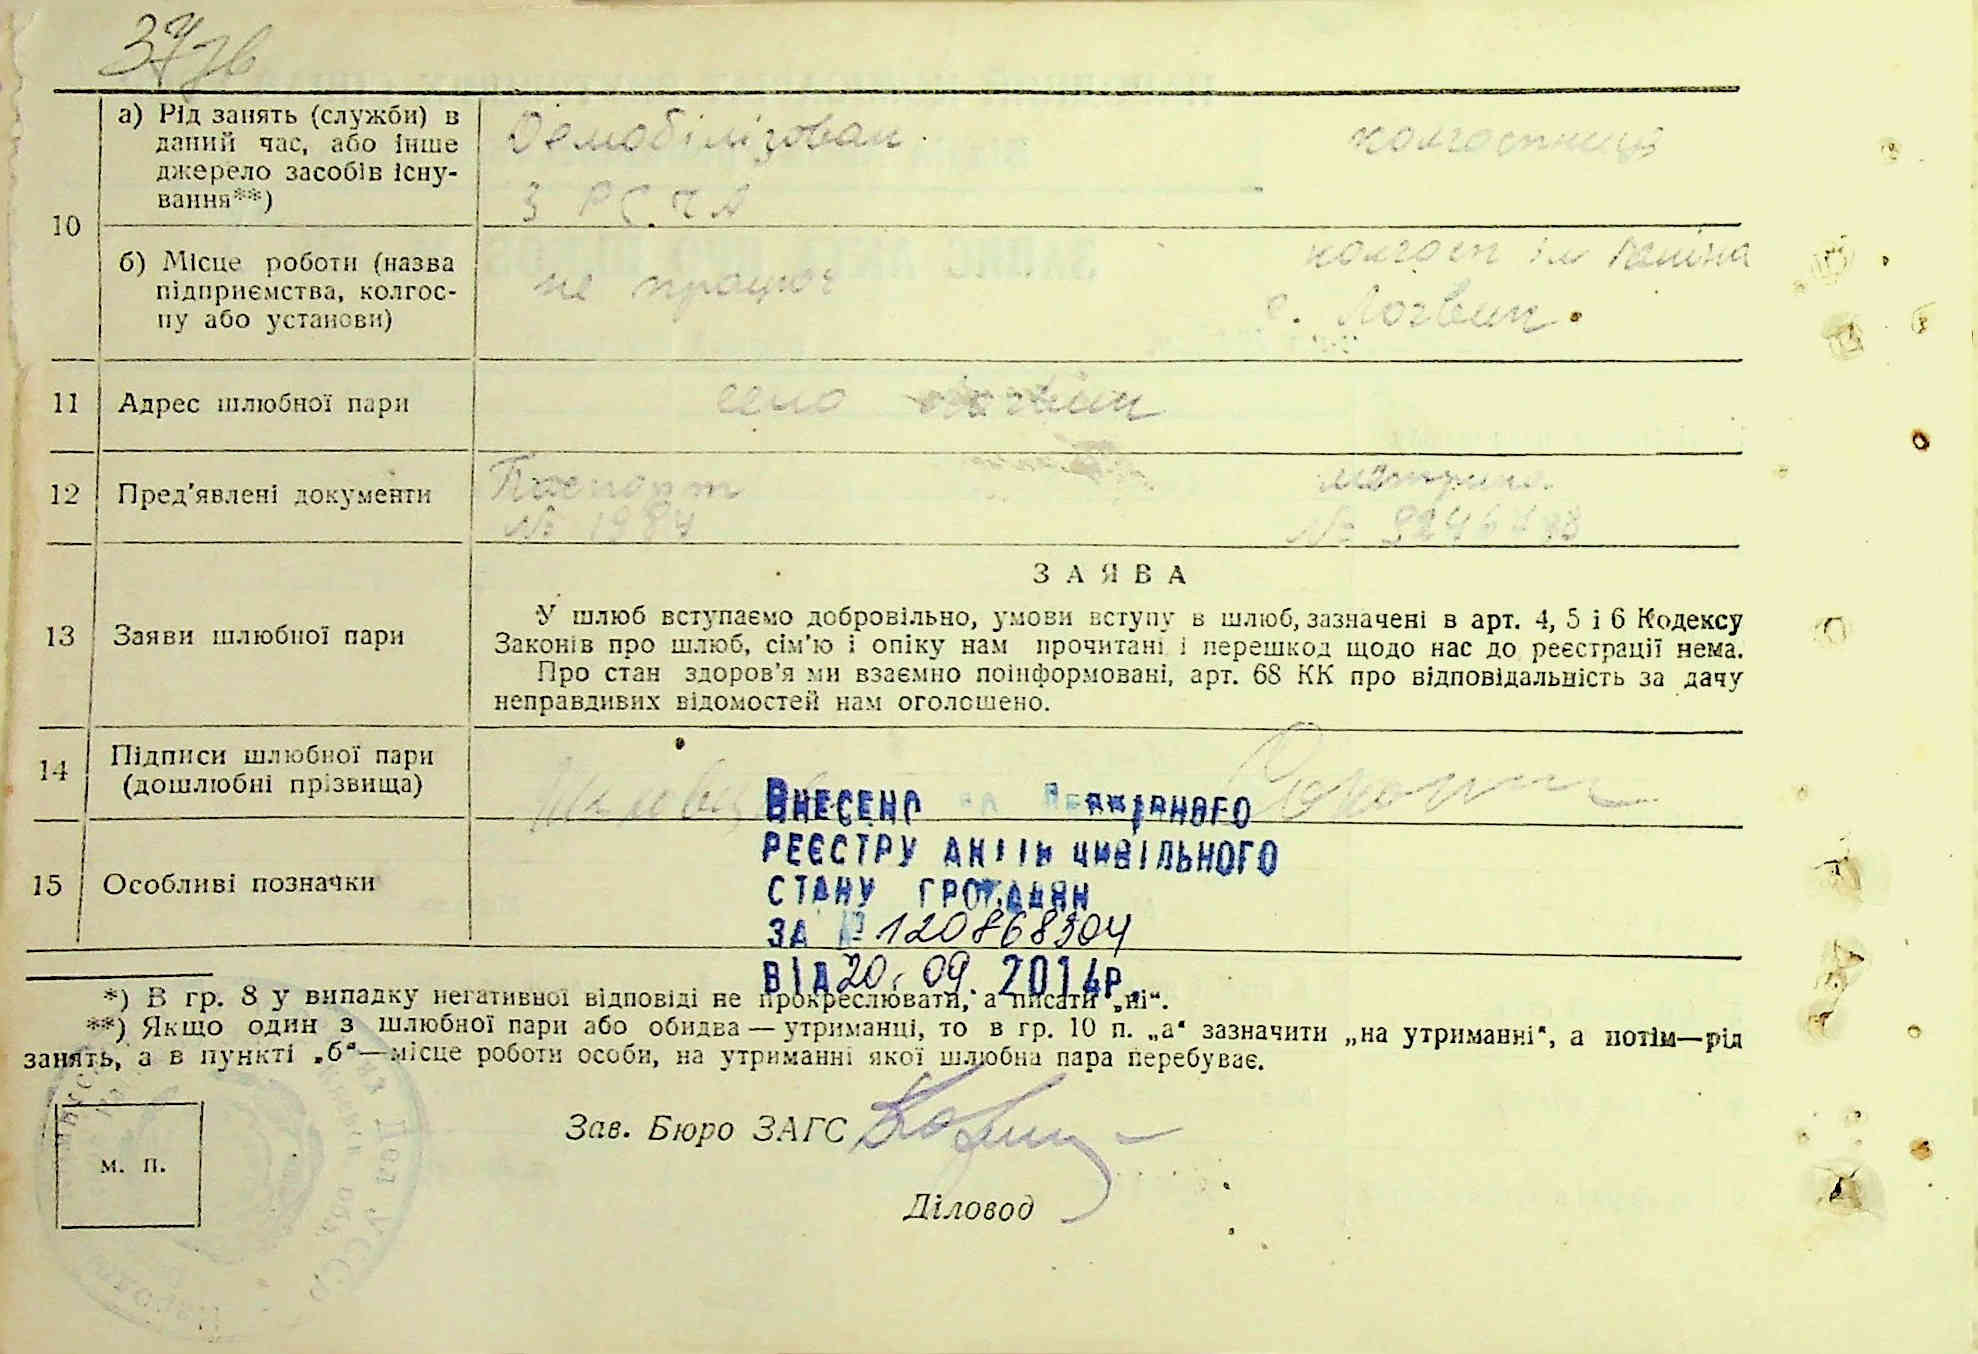 37зв
а) Рід занять (служби) в
даний час, або інше
джерело засобів існу-
вання**)
Демобілізован
З РСЧА
колгоспниця
10
б) Місце роботи (назва
підприємства, колгос-
пу або установи)
не працює
колгосп ім Леніна
с. Логвин
11
Адрес шлюбної пари
село Логвин
12
Пред’явлені документи
Паспорт
№ 1987
метрика
№
13
Заяви шлюбної пари
ЗАЯВА
У шлюб вступаємо добровільно, умови вступу в шлюб, зазначені в арт. 4, 5 і 6 Кодексу
Законів про шлюб, сім’ю і опіку нам прочитані і перешкод щодо нас до реєстрації нема.
Про стан здоров’я ми взаємно поінформовані, арт. 68 КК про відповідальність за дачу
неправдивих відомостей нам оголошено.
14
Підписи шлюбної пари
(дошлюбні прізвища)
15
Особливі позначки
ВНЕСЕНО ДО ДЕРЖАВНОГО
РЕЄСТРУ АКТІВ ЦИВІЛЬНОГО
СТАНУ ГРОМАДЯН
ЗА № 120868304
ВІД 20. 09. 2014р.
*) В гр. 8 у випадку негативної відповіді не прокреслювати, а писати „ні“.
**) Якщо один з шлюбної пари або обидва — утриманці, то в гр. 10 п. „а“ зазначити „на утриманні“, а потім—рід
занять, а в пункті „б“—місце роботи особи, на утриманні якої шлюбна пара перебуває.
Зав. Бюро ЗАГС
м. п.
Діловод